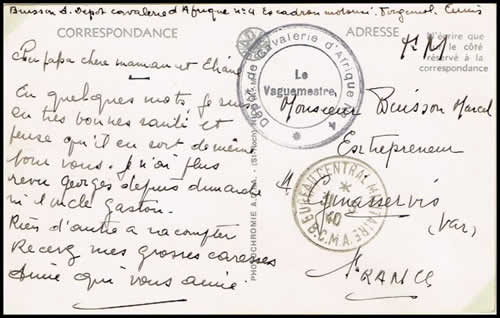 Buisson A. Depot cavalerie d'Afrique no 4 Escadron motorisé. Forgemol. Tunis
CORRESPONDANCE
ADRESSE
N'écrire que
le côté
réservé à la
correspondance
F M
Cher papa chère maman et Eliane
En quelques mots, je suis
en très bonnes santé et
pense qu'il en soit de même
pour vous. Je n'ai plus
revu Georges depuis dimanche
ni l'oncle Gaston.
Rien d'autre à raconter
Recevez mes grosses caresses
Aimé qui vous aime
Dépôt de Cavalerie d'Afrique
Le
Vaguemestre
4
Monsieur Buisson Marcel
Entrepreneur
à Ginasservis
(Var)
FRANCE
BUREAU CENTRAL MILITAIRE
40
B.C.M.A.
PHOTOCHROMIE A